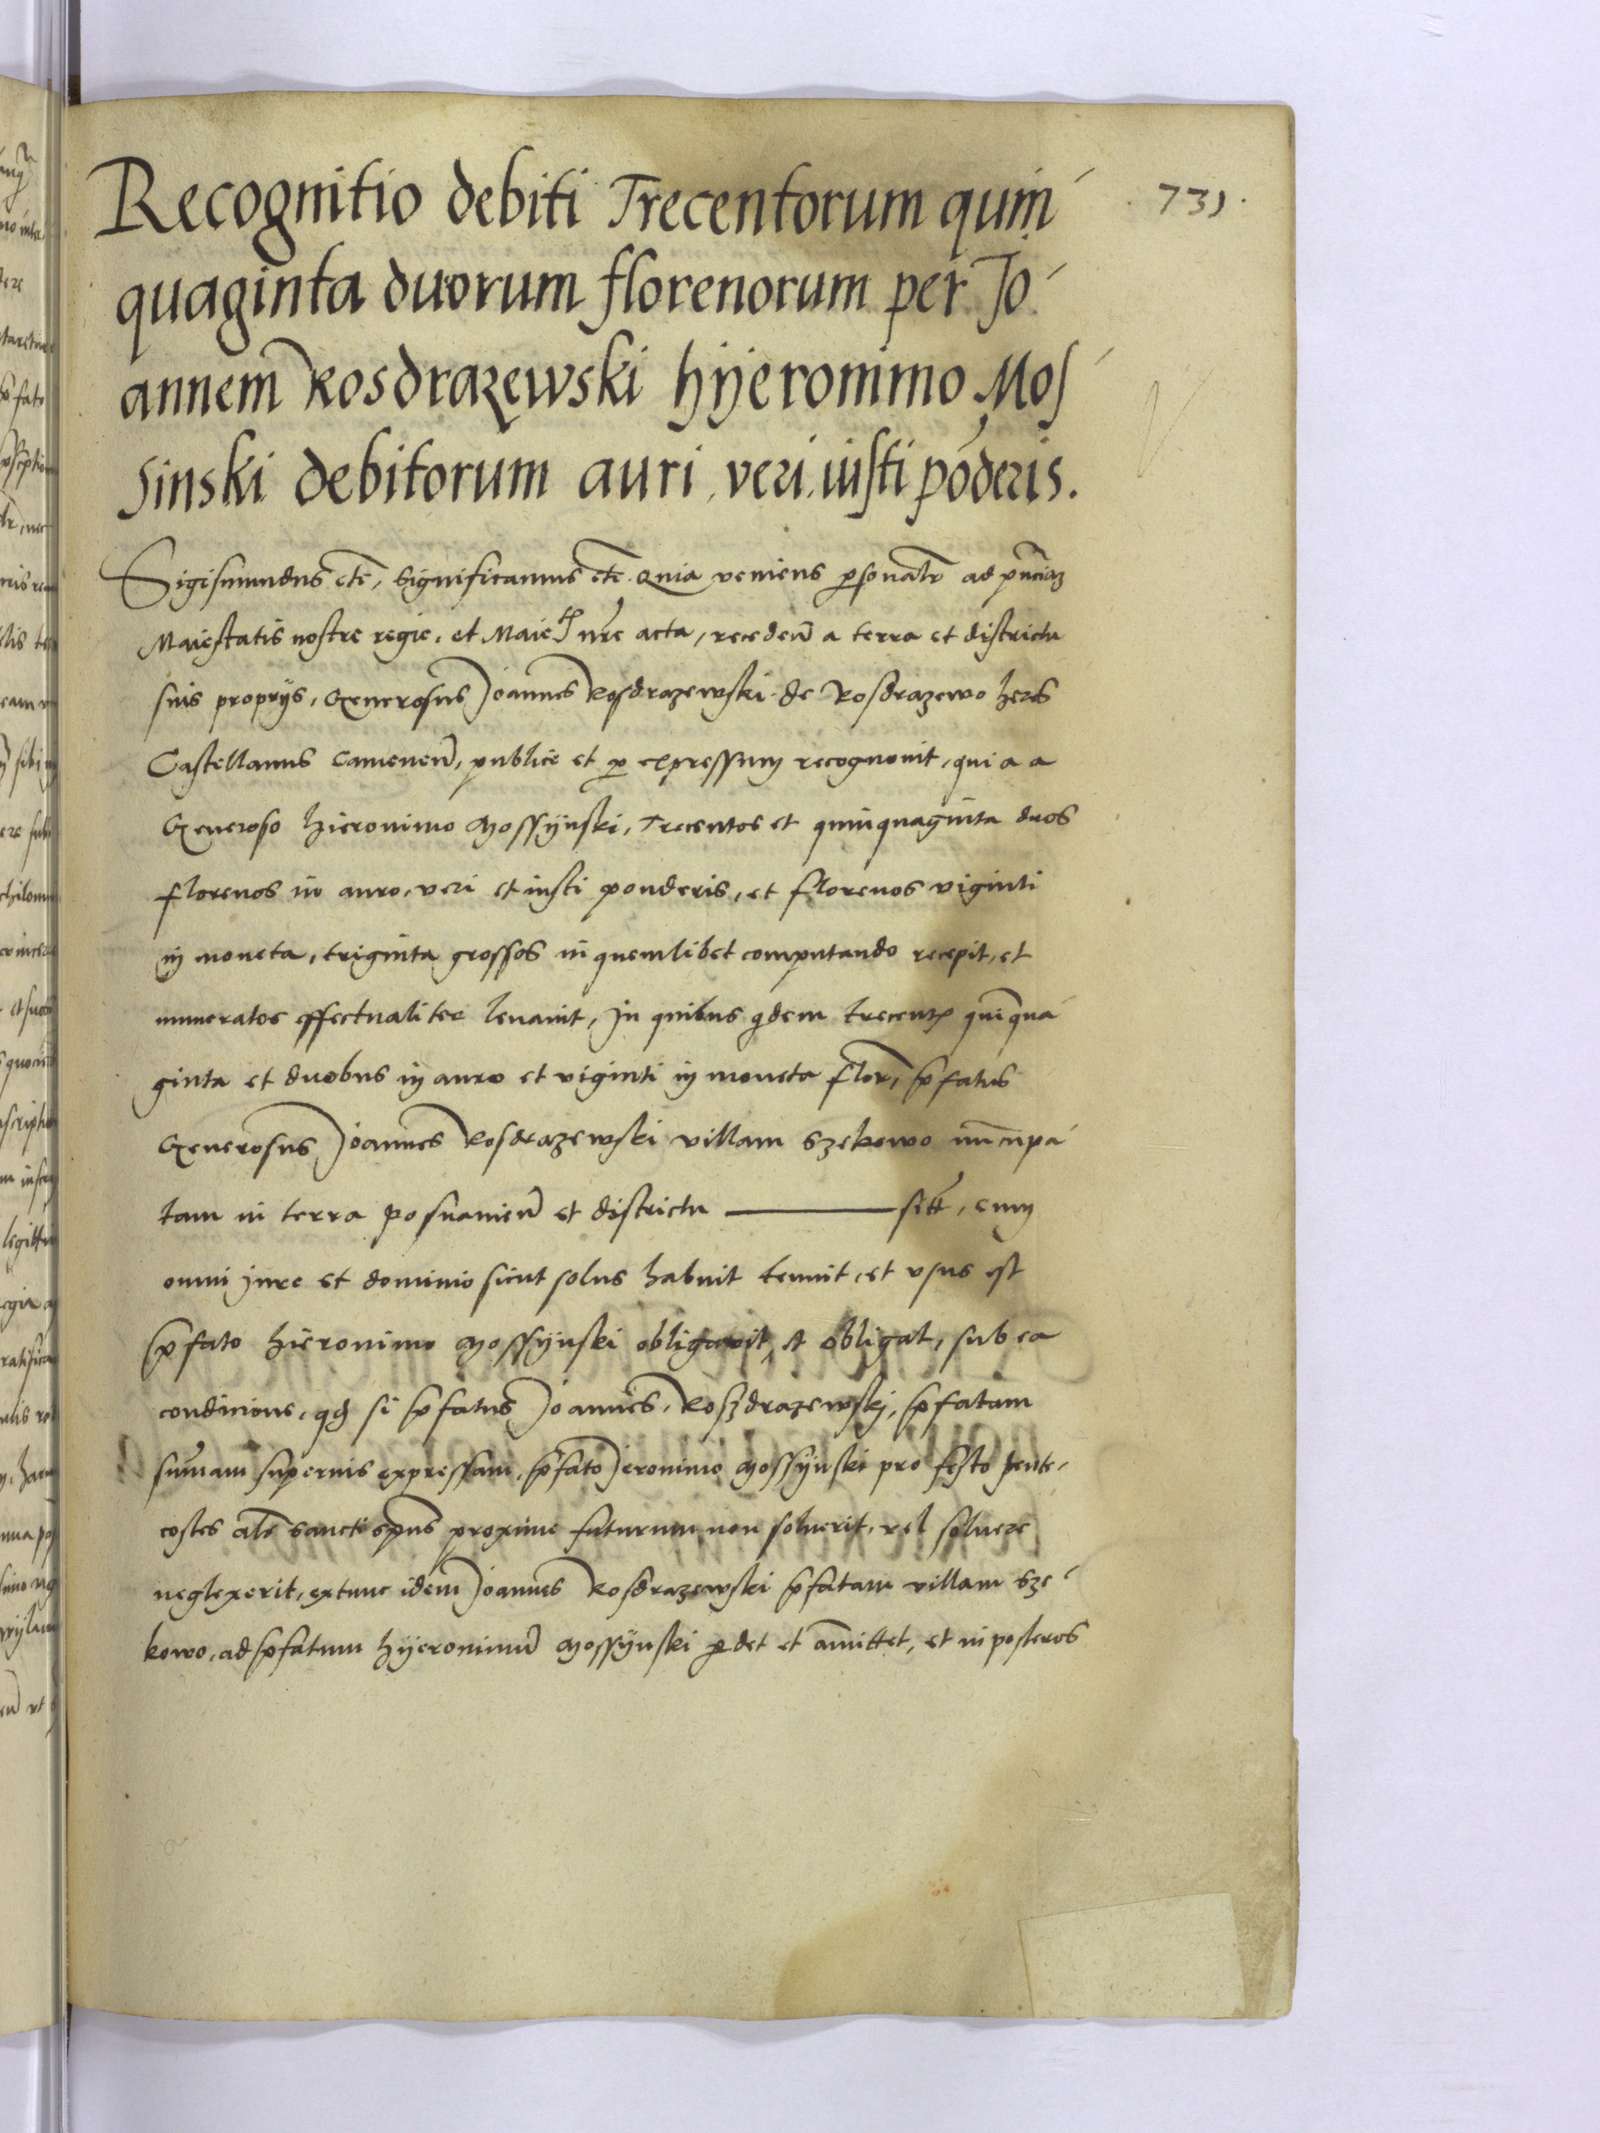 Recognitio debiti Trecentorum quin
731.
quaginta duorum florenorum per Jo
annem Rosdrazewski hÿeronimo Mos
sinski debitorum auri veri iusti põderis.
Sigismundus etc̃, Significamus etc̃ Quia veniens p̱sonalr̃ ad pñciaȝ
Maiestatis nostre regie, et Maietꝭ nr̃e acta, recedeñ a terra et districtu
suis proprijs, Generosus Joannes Rosdrazewski de Rosdrazewo heres
Castellanus Cameneñ, publice et p̱ expressum recognouit, quia a
Generoso Hieronimo Mossÿnski, Trecentos et quinquaginta duos
florenos in auro, veri et iusti ponderis, et florenos viginti
in moneta, triginta grossos in quemlibet computando recepit, et
numeratos effectualiter leuauit, In quibus qdem trecentꝭ quĩqua
ginta et duobus in auro et viginti in moneta floreñ, p̃fatus
Generosus Joannes Rosdrazewski villam Szekowo nũcupa
tam in terra posnanieñ et districtu ——— sitã, cum
omni jure et dominio sicut solus habuit tenuit, et vsus est
p̃fato Hieronimo Mossÿnski obligauit, et obligat, sub ea
condicione, qđ si p̃fatus Joannes, Roszdrazewski, p̃fatam
sum̃am superius expressam, p̃fato Jeronimo Mossÿnski pro festo pente,
costes als̃ sancti spũs proxime futurum non soluerit, vel soluere
neglexerit, extunc idem Joannes Rosdrazewski p̃fatam villam Sze
kowo, ad p̃fatum Hÿeronimum̃ Mossÿnski p̱det et am̃ittet, et in posteros